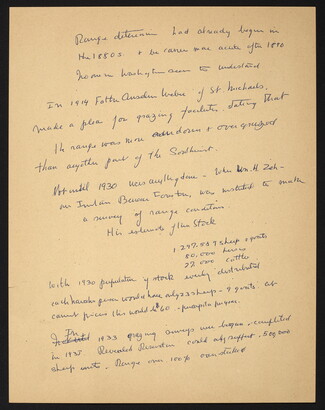 Range deterioran had already begun in
the 1880s & became more acute after 1890
no one in Washington seem to understand
In 1914 Father Anselm Weber of St. Michaels,
made a plea for grazing facilities stating that
the range was more eroded & overgrazed
than any other part of the Southwest.
Not until 1930 was anything done - when Wm. H. Zeh -
an Indian Bureau Forester, was instructed to make
a survey of range conditions.
His estimate of live stock
1,297,589 sheep & goats
80,000 horses
27,000 cattle
With 1930 population of stock evenly distributed
each Navaho person would have only 23 sheep - 9 goats at
current prices this would be $60 -
In
1933 grazing surveys were begun - completed
in 1935 Revealed Reservation could only support 500,000
sheep units - Range over 100% overstocked